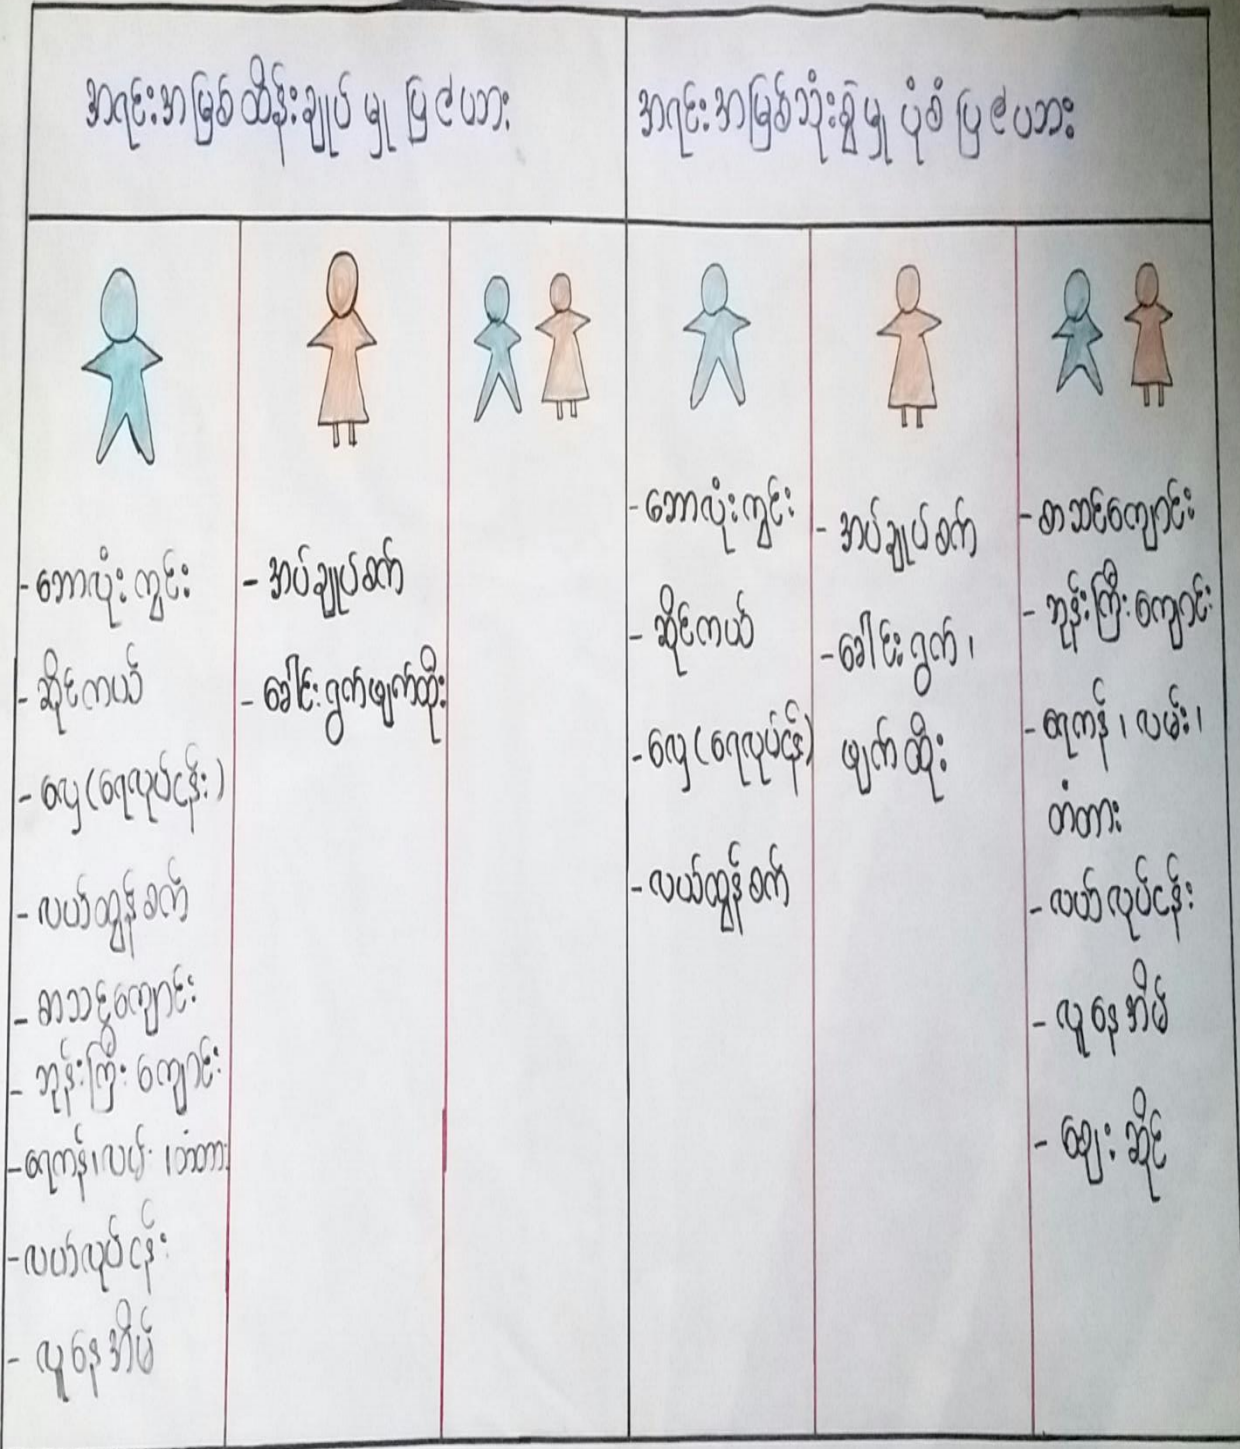 အရင်းအမြစ်ထိန်းချုပ်မှု ပြဇယား
အရင်းအမြစ်သုံးစွဲမှု ပုံစံ ပြဇယား
- ဘောလုံးကွင်း
- ဆိုင်ကယ်
- လှေ (ရေလုပ်ငန်း)
- လယ်ထွန်စက်
- စာသင်ကျောင်း
- ဘုန်းကြီးကျောင်း
- ရေကန်၊ လမ်း၊ တံတား
- လယ်လုပ်ငန်း
- လူနေအိမ်
- အပ်ချုပ်စက်
- ခေါင်းရွက်ဗျက်ထိုး
- ဘောလုံးကွင်း
- ဆိုင်ကယ်
- လှေ (ရေလုပ်ငန်း)
- လယ်ထွန်စက်
- အပ်ချုပ်စက်
- ခေါင်းရွက်၊
ဗျက်ထိုး
- စာသင်ကျောင်း
- ဘုန်းကြီးကျောင်း
- ရေကန်၊ လမ်း၊
တံတား
- လယ်လုပ်ငန်း
- လူနေအိမ်
- ဈေးဆိုင်